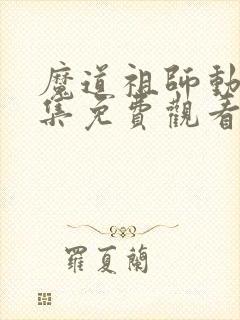 魔道祖師動
集免費觀看
羅夏蘭